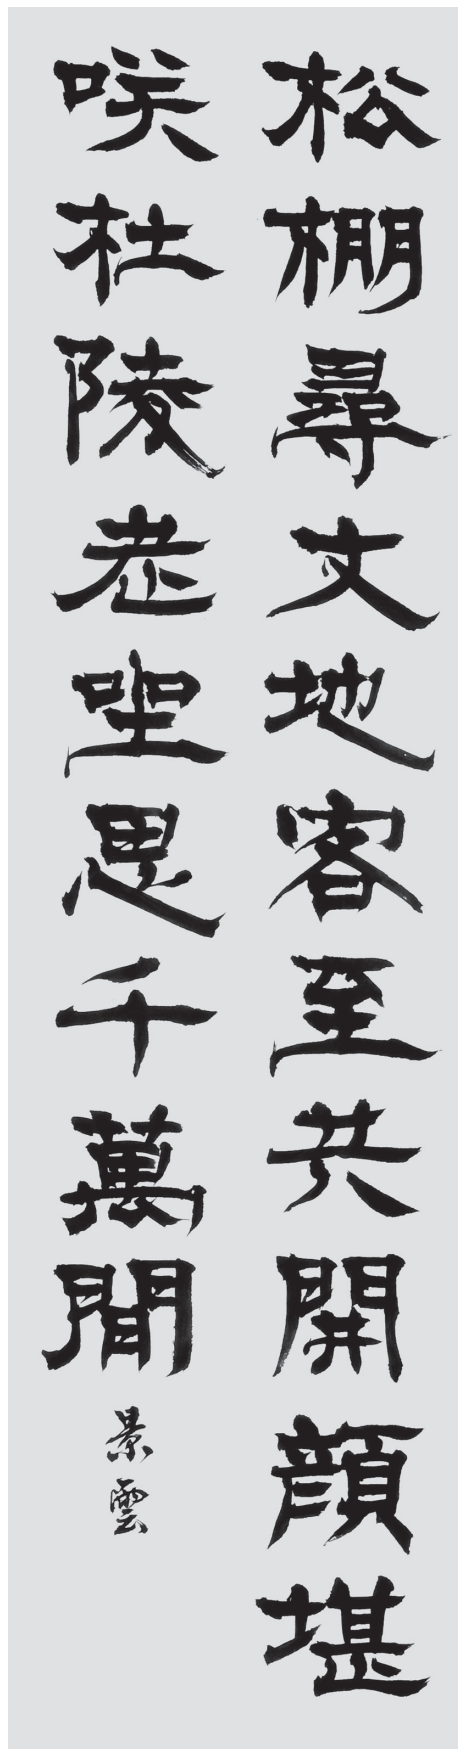 松棚尋丈地客至共開顔堪
咲杜陵老坐思千萬間
景雲